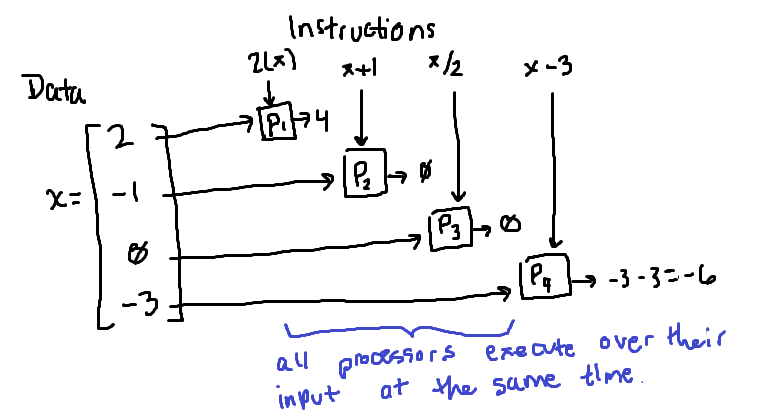 Instructions
2(x) x+1 x/2 x-3
Data
2 P1 4
x= -1 P2 0
0 P3 0
-3 P4 -3-3=-6
all processors execute over their
input at the same time.